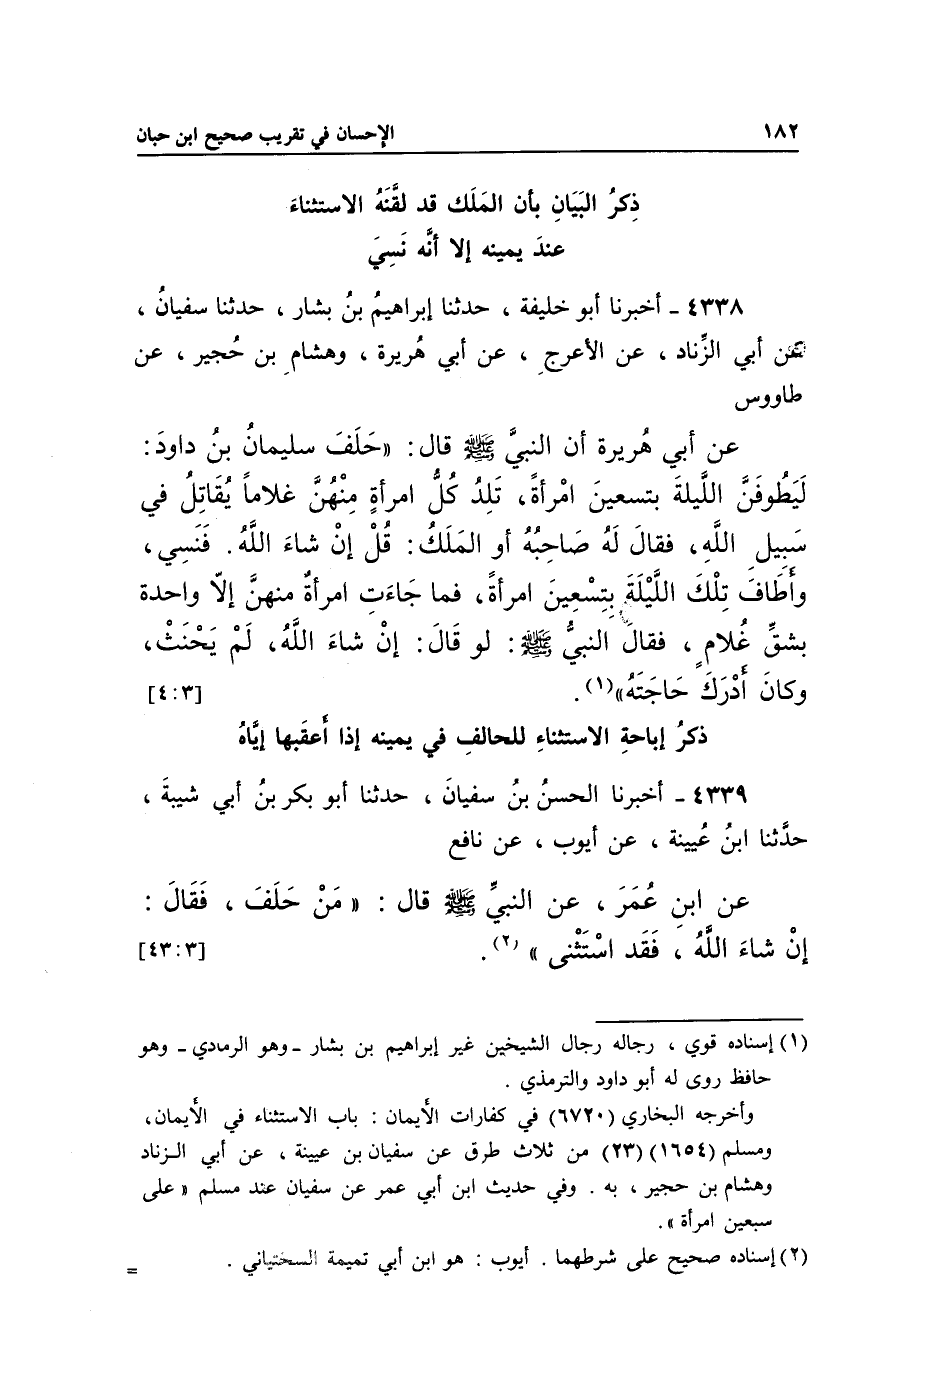 ١٨٢ الإحسان في تقريب صحيح ابن حبان
ذِكرُ البَيَانِ بأن المَلَك قد لقَّنَهُ الاستثناءَ
عندَ يمينه إلا أنَّه نَسِيَ
٤٣٣٨ ـ أخبرنا أبو خليفة ، حدثنا إبراهيمُ بنُ بشار ، حدثنا سفيانُ ،
عن أبي الزِّناد ، عن الأعرجِ ، عن أبي هُريرة ، وهشامِ بن حُجير ، عن
طاووس
عن أبي هُريرة أن النبيَّ ﷺ قال: «حَلَفَ سليمانُ بنُ داودَ:
لَيَطُوفَنَّ اللَّيلةَ بتسعينَ امْرأةً، تَلِدُ كُلُّ امرأةٍ مِنْهُنَّ غلاماً يُقَاتِلُ في
سَبِيلِ اللَّهِ، فقالَ لَهُ صَاحِبُهُ أو المَلَكُ: قُلْ إنْ شاءَ اللَّهُ. فَنَسِي،
وأَطَافَ تِلْكَ اللَّيْلَةَ بِتِسْعِينَ امرأةً، فما جَاءَتِ امرأةٌ منهنَّ إلّا واحدة
بشقِّ غُلامٍ ، فقالَ النبيُّ ﷺ: لو قَالَ: إنْ شاءَ اللَّهُ، لَمْ يَحْنَثْ،
وكانَ أَدْرَكَ حَاجَتَهُ»(١). [٤:٣]
ذكرُ إباحةِ الاستثناءِ للحالفِ في يمينه إذا أَعقَبها إيَّاهُ
٤٣٣٩ ـ أخبرنا الحسنُ بنُ سفيانَ ، حدثنا أبو بكر بنُ أبي شيبةَ ،
حدَّثنا ابنُ عُيينة ، عن أيوب ، عن نافع
عن ابنِ عُمَرَ ، عن النبيِّ ﷺ قال : « مَنْ حَلَفَ ، فَقَالَ :
إنْ شاءَ اللَّهُ ، فَقَد اسْتَثْنى » (٢). [٤٣:٣]
(١) إسناده قوي ، رجاله رجال الشيخين غير إبراهيم بن بشار ـ وهو الرمادي ـ وهو
حافظ روى له أبو داود والترمذي .
وأخرجه البخاري (٦٧٢٠) في كفارات الأيمان : باب الاستثناء في الأيمان،
ومسلم (١٦٥٤) (٢٣) من ثلاث طرق عن سفيان بن عيينة ، عن أبي الزناد
وهشام بن حجير ، به . وفي حديث ابن أبي عمر عن سفيان عند مسلم « على
سبعين امرأة ».
(٢) إسناده صحيح على شرطهما . أيوب : هو ابن أبي تميمة السختياني . =